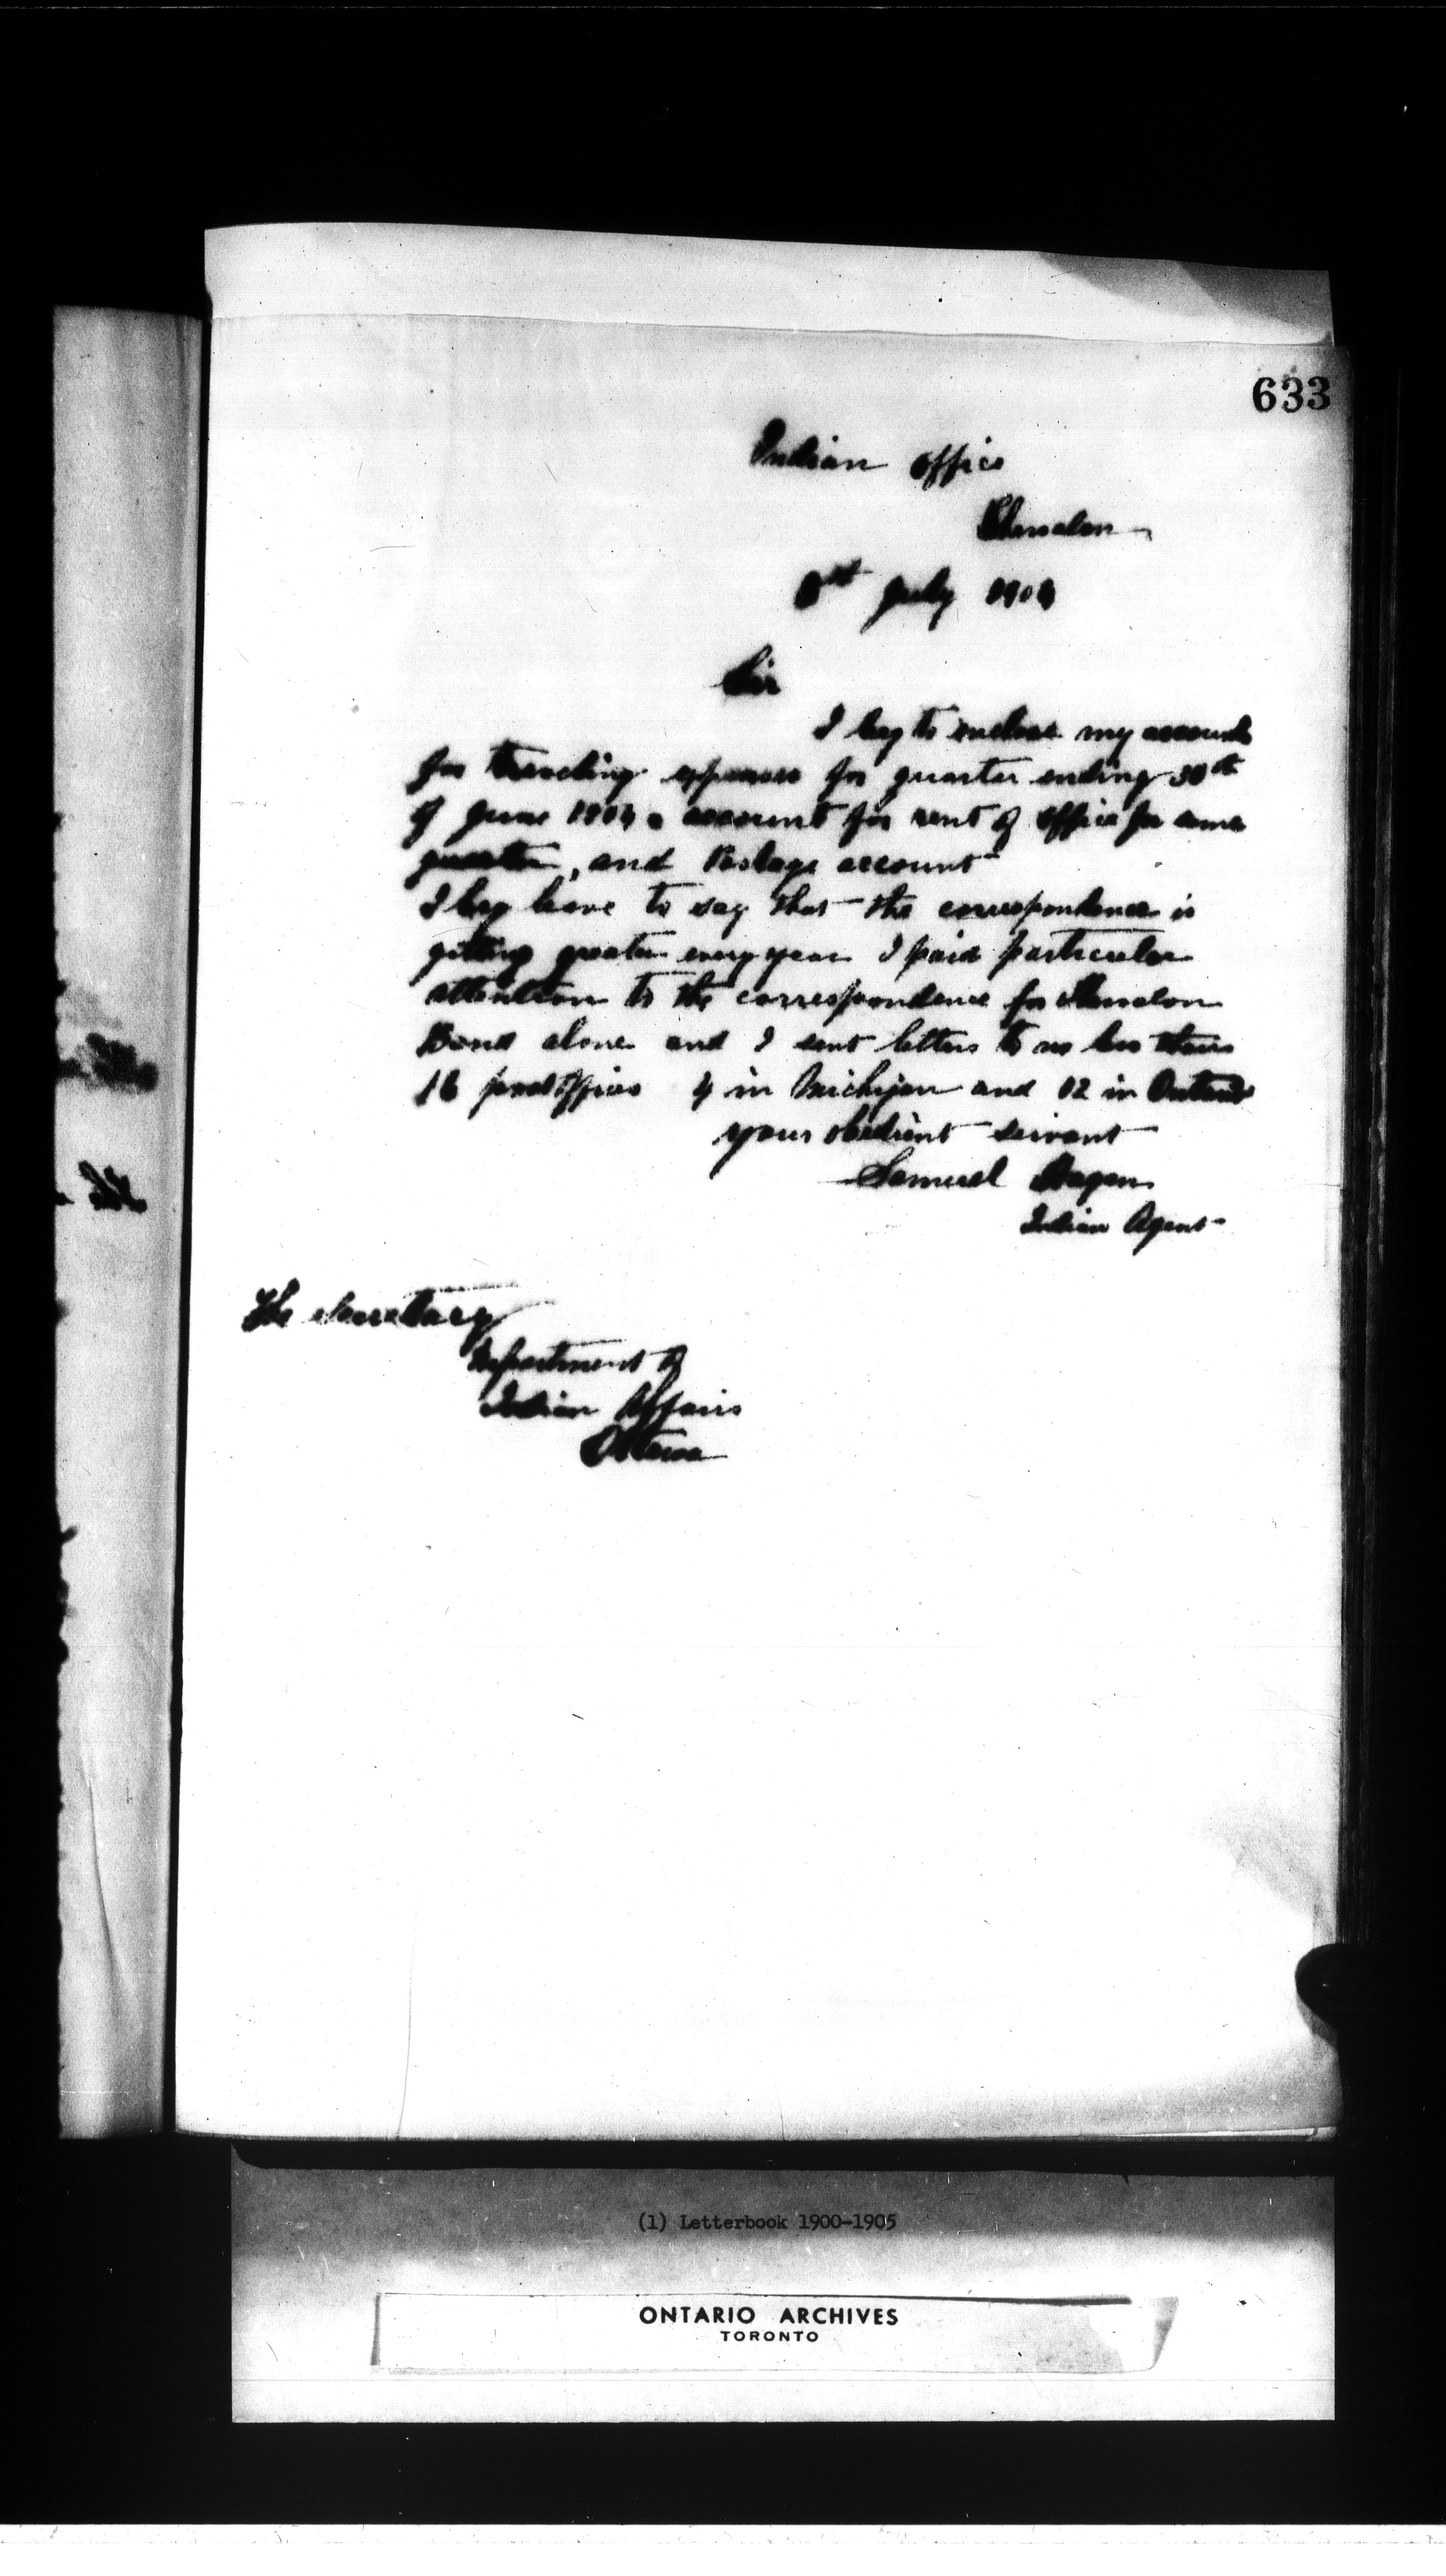 633
Indian Office
Thessalon
1st July 1904
Sir
I beg to enclose my account
for travelling expenses for quarter ending 30th
of June 1904 account for rent of office for same
quarter, and Postage account
I beg leave to say that the correspondence is
getting greater every year I paid particular
attention to the correspondence for Thessalon
Band alone and I sent letters to no less than
16 postoffices 4 in Michigan and 12 in Ontario
your obedient servant
Samuel Hagan
Indian Agent
The Secretary
Department of
Indian Affairs
Ottawa
(1) Letterbook 1900-1905
ONTARIO ARCHIVES
TORONTO